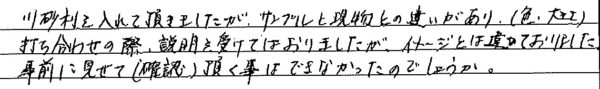 川砂利を入れて頂きましたが、サンプルと現物との違いがあり、(色・大きさ)
打ち合わせの際、説明を受けてはおりましたが、イメージとは違っておりました。
事前に見せて(確認)頂く事はできなかったのでしょうか。